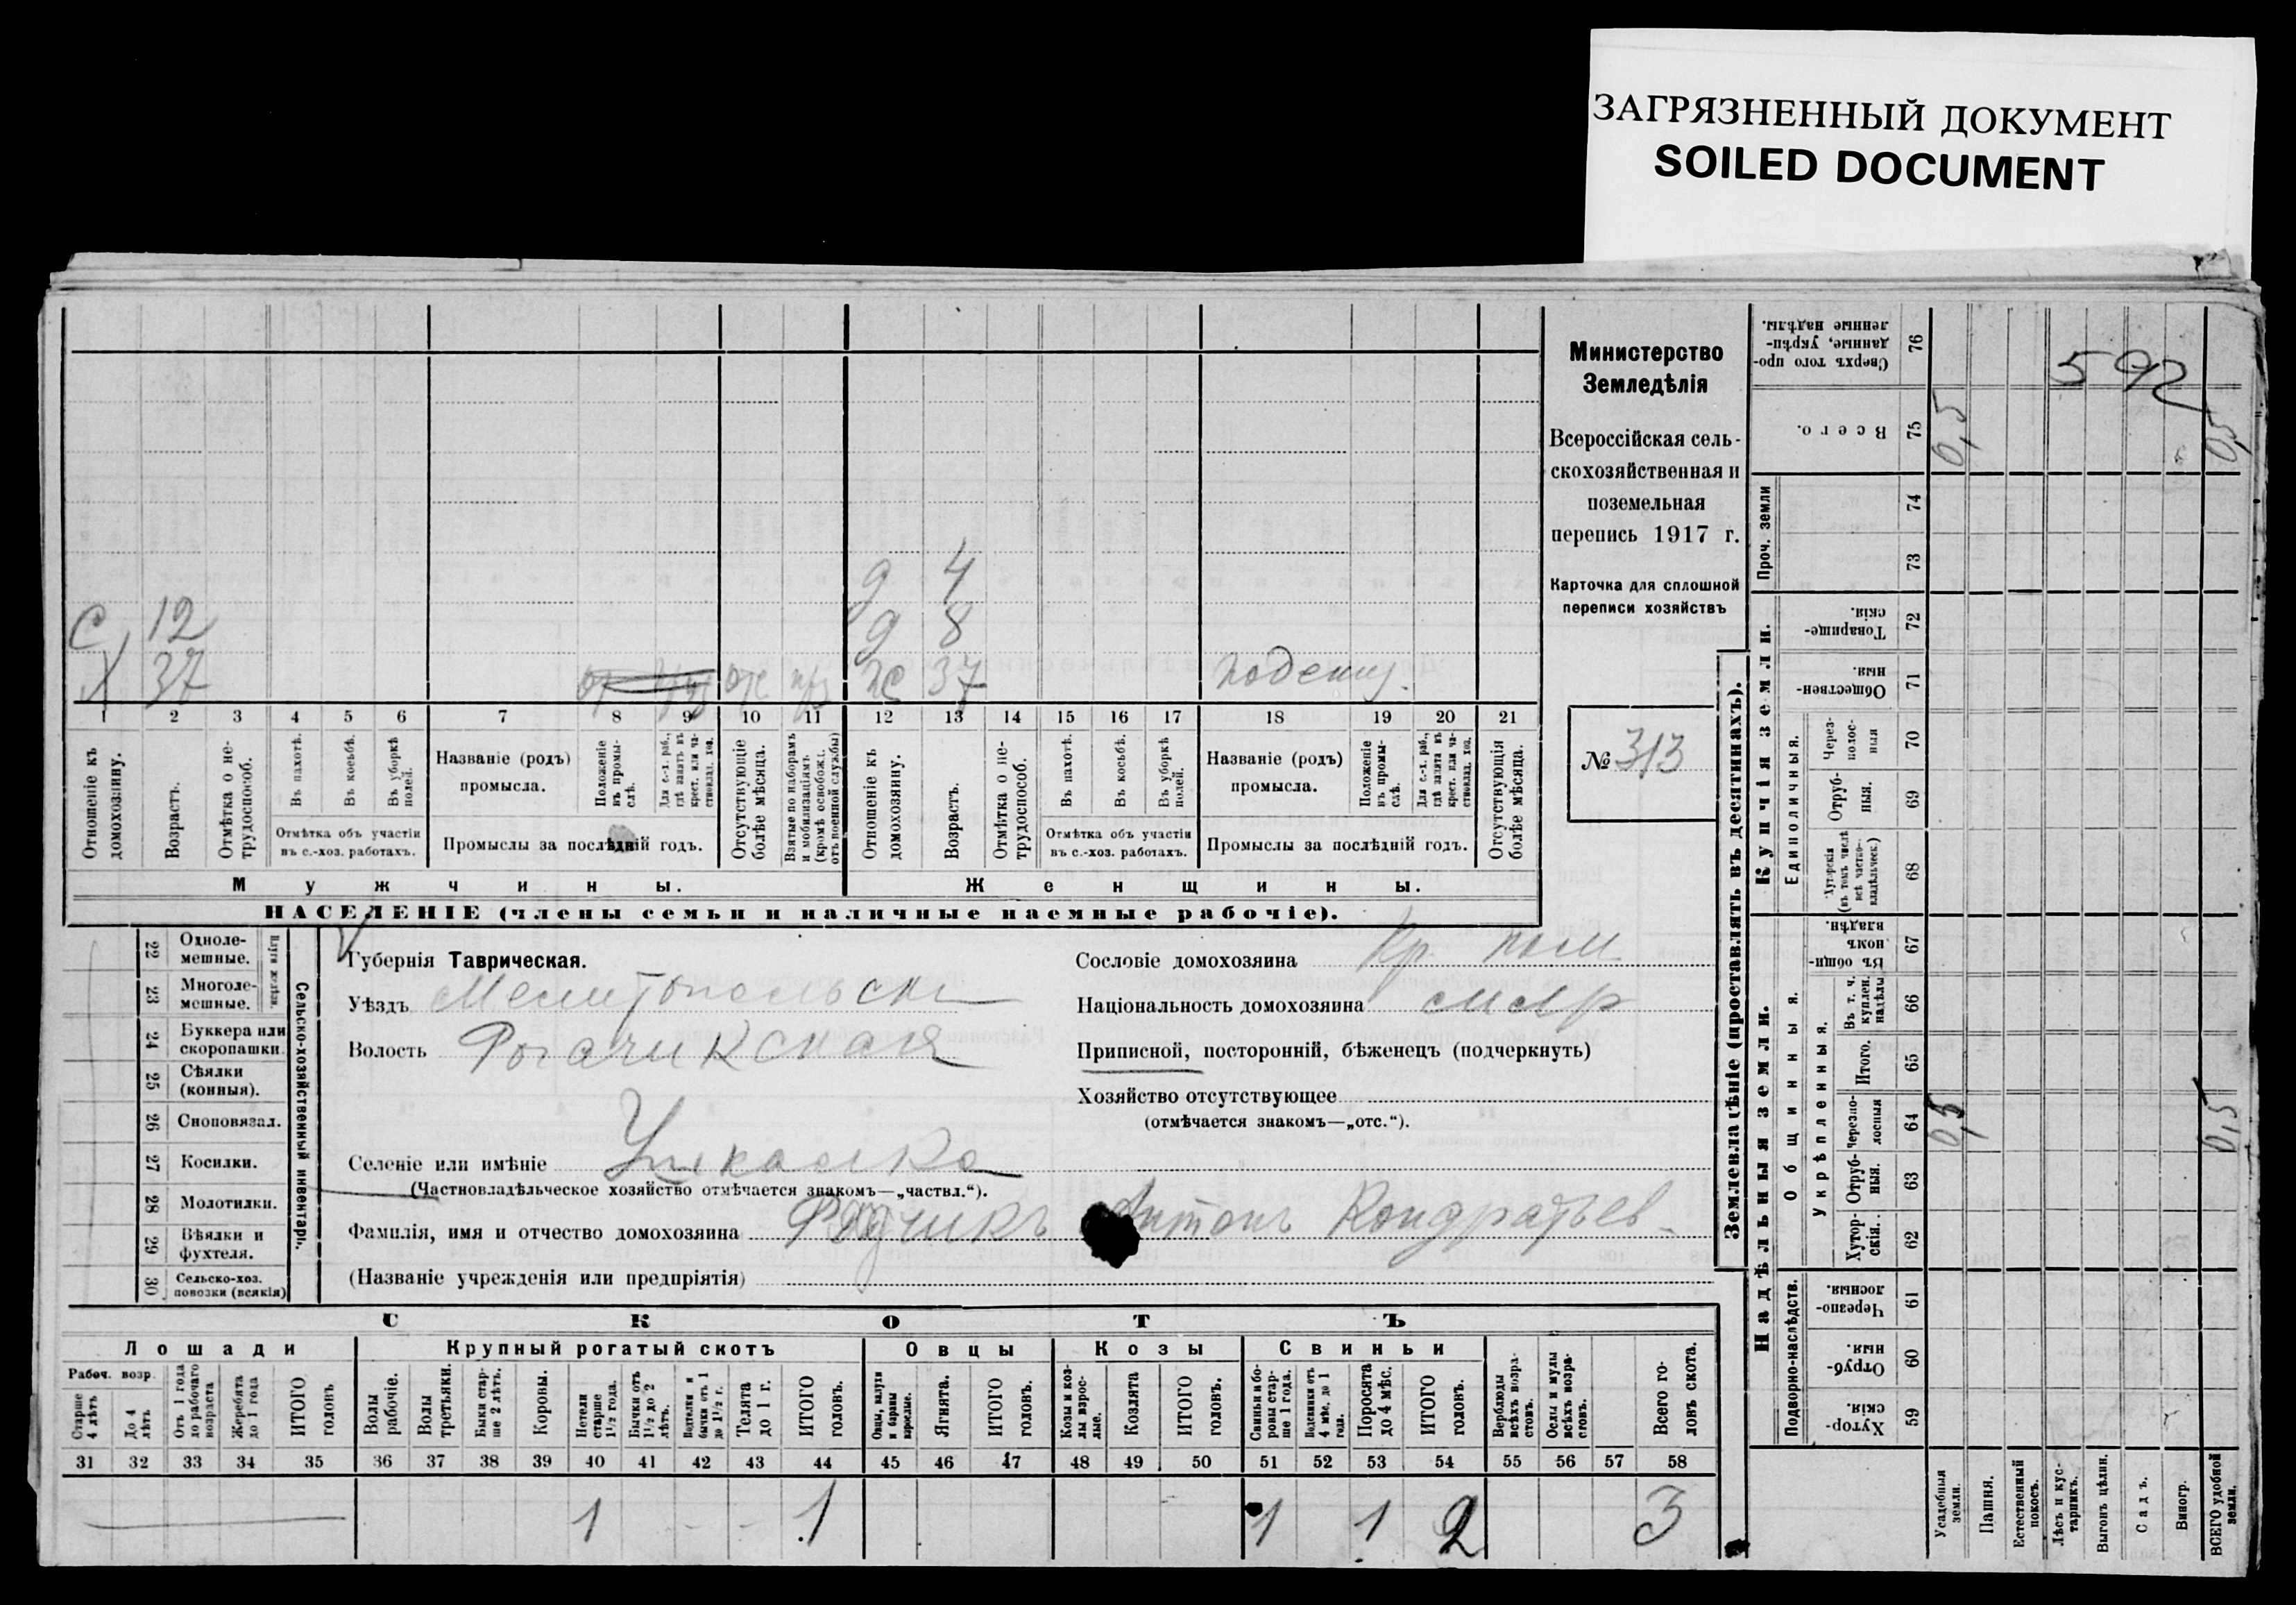 ЗАГРЯЗНЕННЫЙ ДОКУМЕНТ
SOILED DOCUMENT
Министерство
Земледѣлія
Всероссійская сель-
скохозяйственная и
поземельная
перепись 1917 г.
Карточка для сплошной
переписи хозяйствъ
№ 313
д 4
С 12 д 8
Х 37 ж 37 поденщ.
1 2 3 4 5 6 7 8 9 10 11 12 13 14 15 16 17 18 19 20 21
Отношеніе къ домохозяину.
Возрастъ.
Отмѣтка о не-трудоспособ.
Въ пахотѣ.
Въ косьбѣ.
Въ уборкѣ полей.
Отмѣтка объ участіи
въ с.-хоз. работахъ.
Названіе (родъ)
промысла.
Положеніе въ промы-слѣ.
Для с.-х. раб., гдѣ занятъ въ крест. или ча-стновлад. хоз.
Промыслы за послѣдній годъ.
Отсутствующіе болѣе мѣсяца.
Взятые по наборамъ и мобилизаціямъ (кромѣ освобожд. отъ военной службы)
Отношеніе къ домохозяину.
Возрастъ.
Отмѣтка о не-трудоспособ.
Въ пахотѣ.
Въ косьбѣ.
Въ уборкѣ полей.
Отмѣтка объ участіи
въ с.-хоз. работахъ.
Названіе (родъ)
промысла.
Положеніе въ промы-слѣ.
Для с.-х. раб., гдѣ занята въ крест. или ча-стновлад. хоз.
Промыслы за послѣдній годъ.
Отсутствующія болѣе мѣсяца.
Мужчины. Женщины.
НАСЕЛЕНІЕ (члены семьи и наличные наемные рабочіе).
22 Одноле-мешные.
23 Многоле-мешные.
24 Буккера или скоропашки.
25 Сѣялки (конныя).
26 Сноповязал.
27 Косилки.
28 Молотилки.
29 Вѣялки и фухтеля.
30 Сельско-хоз. повозки (всякія)
Сельско-хозяйственный инвентарь.
Губернія Таврическая.
Уѣздъ Мелитопольск
Волость Рогачикская
Селеніе или имѣніе Ушкалка
(Частновладѣльческое хозяйство отмѣчается знакомъ—„частвл.“).
Фамилія, имя и отчество домохозяина Антонъ Кондратьев
(Названіе учрежденія или предпріятія)
Сословіе домохозяина Кр.
Національность домохозяина малор
Приписной, посторонній, бѣженецъ (подчеркнуть)
Хозяйство отсутствующее
(отмѣчается знакомъ—„отс.“).
СКОТЪ
Лошади Крупный рогатый скотъ Овцы Козы Свиньи
Рабоч. возр.
Старше 4 лѣтъ
До 4 лѣтъ
Отъ 1 года до рабочаго возраста
Жеребята до 1 года
ИТОГО головъ
Волы рабочіе.
Волы третьяки.
Быки стар-ше 2 лѣтъ.
Коровы.
Нетели старше 1½ года.
Бычки отъ 1½ до 2 лѣтъ.
Подтелки и бычки отъ 1 до 1½ г.
Телята до 1 г.
ИТОГО головъ.
Овцы, валухи и бараны взрослые.
Ягнята.
ИТОГО головъ.
Козы и коз-лы взрос-лые.
Козлята
ИТОГО головъ.
Свиньи и бо-ровы стар-ше 1 года.
Подсвинки отъ 4 мѣс. до 1 года.
Поросята до 4 мѣс.
ИТОГО головъ.
Верблюды всѣхъ возра-стовъ.
Ослы и мулы всѣхъ возра-стовъ.
Всего го-ловъ скота.
31 32 33 34 35 36 37 38 39 40 41 42 43 44 45 46 47 48 49 50 51 52 53 54 55 56 57 58
1 1 1 1 2 3
Землевладѣніе (проставлять въ десятинахъ).
Надѣльныя земли. Купчія земли. Проч. земли
Подворно-наслѣдств.
Общинныя.
Укрѣпленныя.
Единоличныя.
Хутор-скія. 59
Отруб-ныя. 60
Черезпо-лосныя. 61
Хутор-скія. 62
Отруб-ныя. 63
Черезпо-лосныя 64
Итого. 65
Въ т. ч. куплен. надѣлы 66
Въ общин-номъ владѣн. 67
Хуторскія (въ томъ числѣ всѣ частно-владѣльческ.) 68
Отруб-ныя. 69
Через-полос-ныя 70
Обществен-ныя. 71
Товарище-скія. 72
73
74
Всего. 75
Сверхъ того про-данные, укрѣп-ленные надѣлы. 76
592
0,5 0,5
0,5 0,5
Усадебныя земли.
Пашня.
Естественный покосъ.
Лѣсъ и кус-тарникъ.
Выгонъ цѣлин.
Садъ.
Виногр.
ВСЕГО удобной земли.